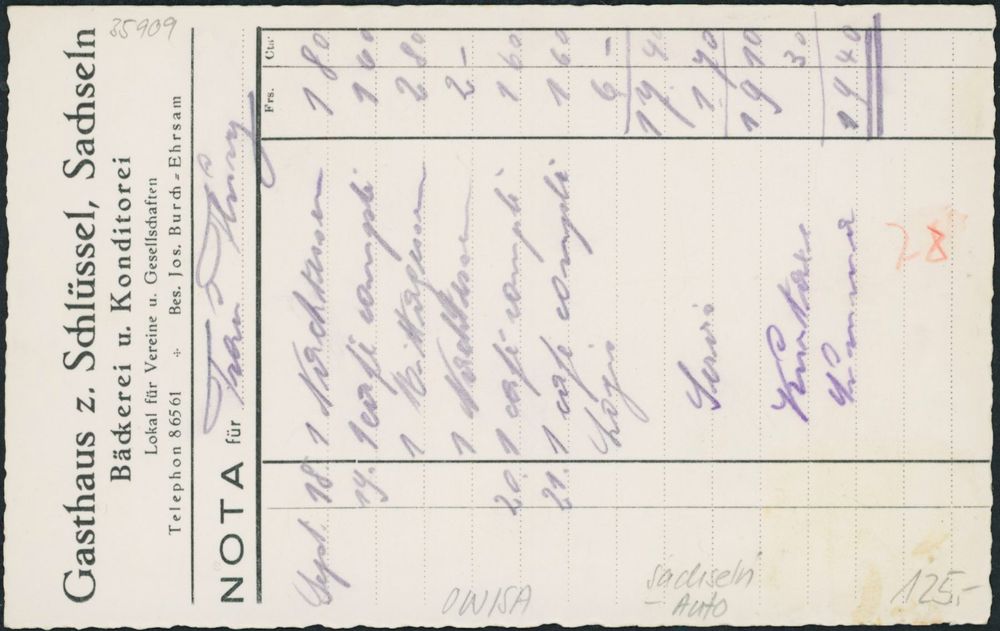 35909
Gasthaus z. Schlüssel, Sachseln
Bäckerei u. Konditorei
Lokal für Vereine u. Gesellschaften
Telephon 86561 ÷ Bes. Jos. Burch-Ehrsam
NOTA für Frau
Frs. Cts.
Sept. 18. 1 Nachtessen 1 80
19. 1 café compli 1 60
1 Mittagessen 2 80
1 Nachtessen 2 –
20. 1 café compli 1 60
21. 1 café compli 1 60
Logis 6 –
17. 40
Servis 1. 70
19 10
Kurtaxe 30
Summa 19 40
78
OWISA
Sachseln
– Auto
125,-